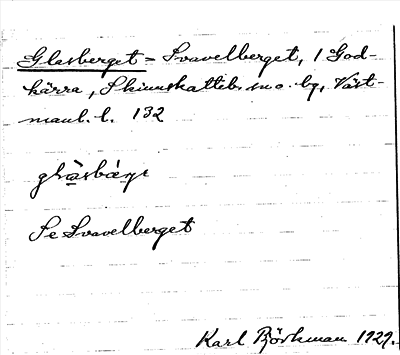 Glasberget = Svavelberget, i God-
kärra, Skinnskatteb. sn o. bg, Väst-
manl. l. 132
Se Svavelberget
Karl Björkman 1929.